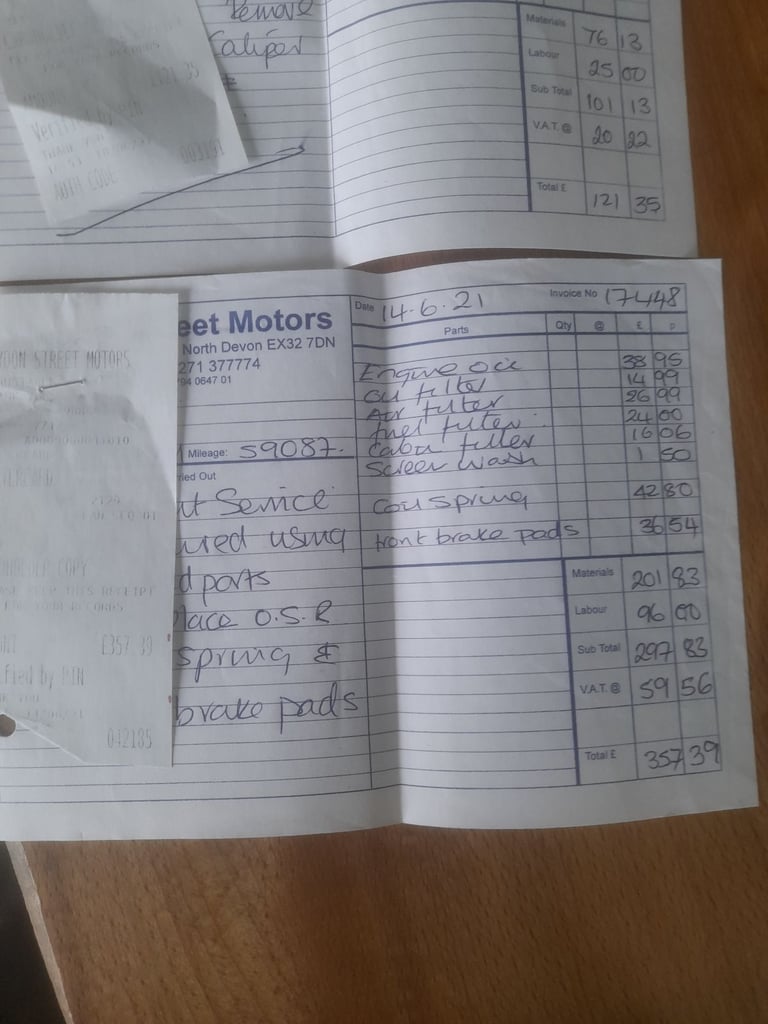 Remove
Caliper
&
£121.35
Verified by PIN
AUTH CODE 003191
Materials 76 13
Labour 25 00
Sub Total 101 13
V.A.T. @ 20 22
Total £ 121 35
eet Motors
North Devon EX32 7DN
271 377774
94 0647 01
Mileage: 59087.
ried Out
t Service
ured using
d parts
lace O.S.R
spring &
brake pads
Date 14.6.21 Invoice No 17448
Parts Qty @ £ p
Engine oil 38 95
Oil filter 14 99
Air filter 26 99
fuel filter 24 00
Cabin filter 16 06
Screen wash 1 50
Coil spring 42 80
front brake pads 36 54
Materials 201 83
Labour 96 00
Sub Total 297 83
V.A.T. @ 59 56
Total £ 357 39
STREET MOTORS
COPY
THIS RECEIPT
YOUR RECORDS
£357.39
fied by PIN
042185